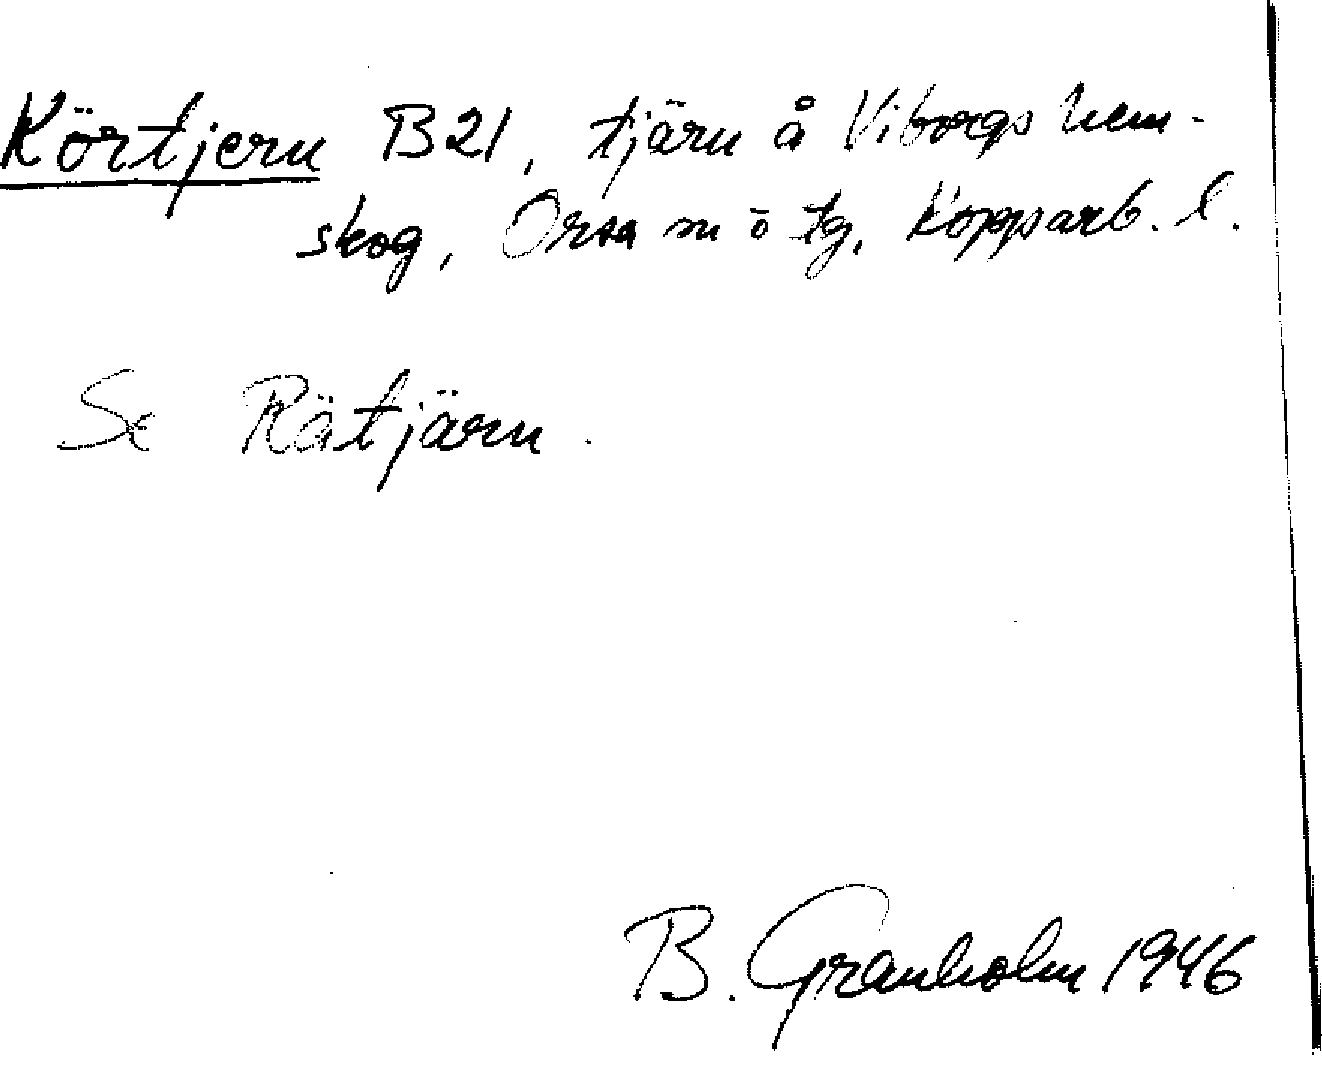 Körtjern B21, tjärn å Viborgs hem-
skog, Orsa sn o tg, Kopparb. l.
Se Rätjärn.
B. Granholm 1946